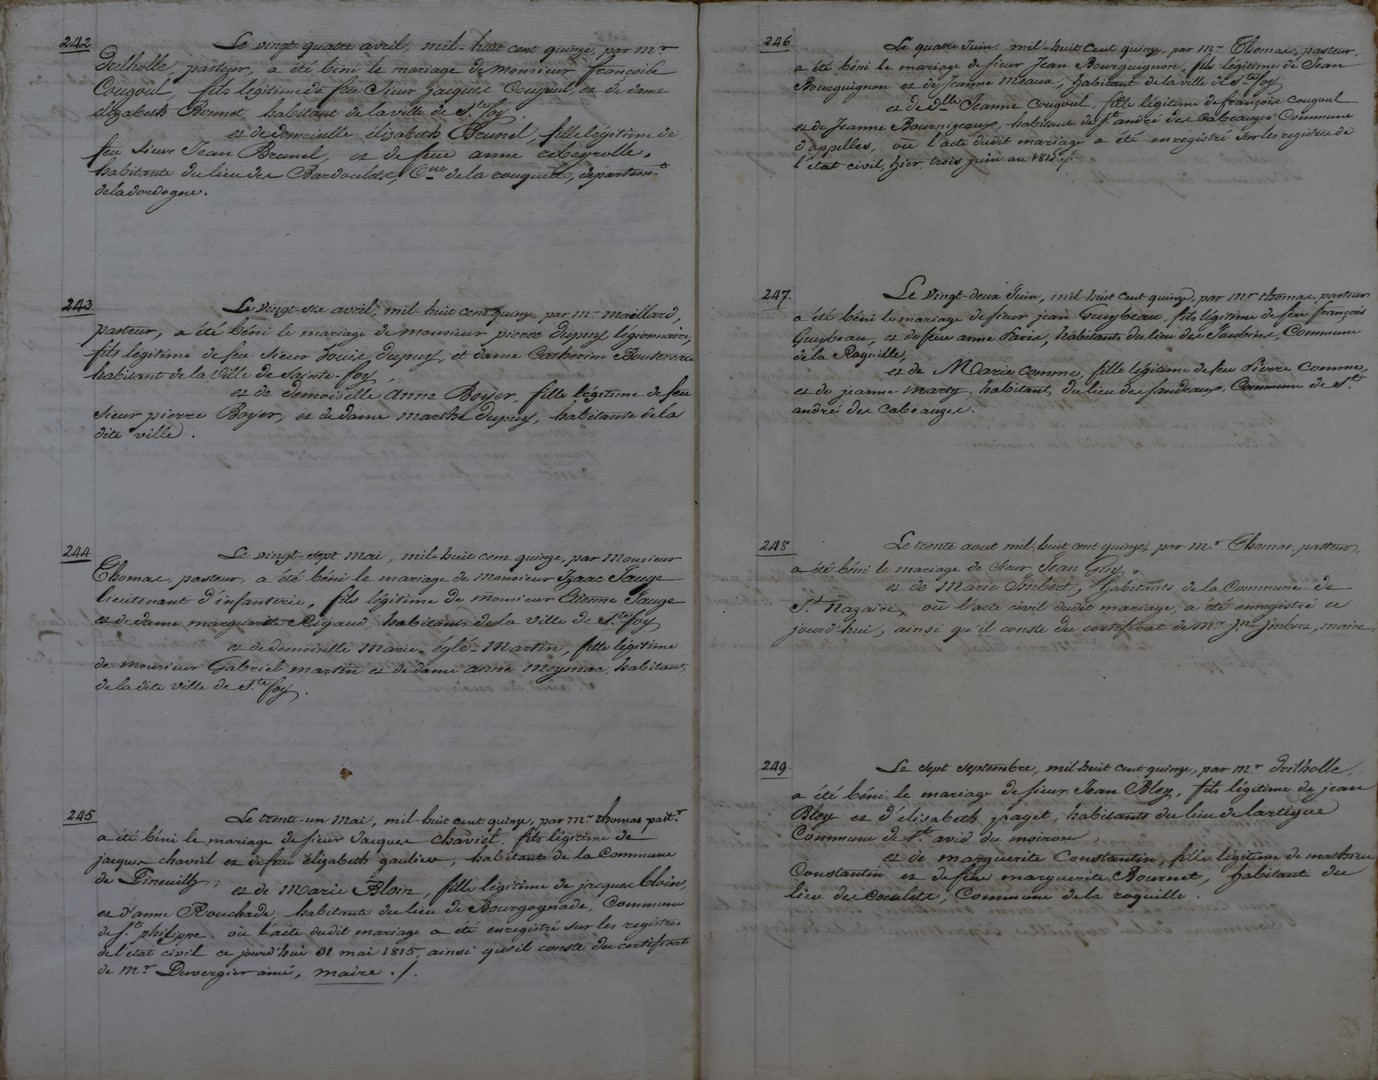 242
Le vingt quatre avril, mil-huit cent quinze, par mr
Drilholle, pasteur, a été béni le mariage de Monsieur françois
Cougoul, fils légitime de feu Sieur Jacques Cougoul, et de dame
élizabeth Bonnet, habitant de la ville de Ste foy.
et de demoiselle élizabeth Brunel, fille légitime de
feu Sieur Jean Brunel, et de feue anne
habitante du lieu des Bardoulets, Cne de la rouquette, départemt
de la dordogne.
243
Le vingt-six avril, mil huit cent quinze, par mr maillard,
pasteur, a été béni le mariage de monsieur pierre Dupuy légionnaire,
fils légitime de feu Sieur Louis Dupuy, et dame Catherine
habitant de la Ville de Sainte-foy,
et de Demoiselle Anne Boyer, fille légitime de feu
Sieur pierre Boyer, et de dame marthe Dupuy, habitante de la
dite ville.
244
Le vingt-sept mai, mil-huit cent quinze, par Monsieur
Thomas, pasteur, a été béni le mariage de Monsieur Izaac Jauge
lieutenant d'infanterie, fils légitime de monsieur Etienne Jauge
et de dame marguerite Rigaud, habitant de la ville de Ste foy
et de demoiselle Marie-églé-Martin, fille légitime
de monsieur Gabriel martin et de dame anne Meymac, habitant
de la dite ville de Ste foy.
245
Le trente-un Mai, mil-huit cent quinze, par mr thomas pastr
a été béni le mariage de Sieur Jacques chaviel, fils légitime de
jacques chaviel et de feu élizabeth gaulier, habitant de la Commune
de Pineuilh;
et de Marie Bloin, fille légitime de jacques bloin,
et d'anne Bouchade, habitante du lieu de Bourgognade, Commune
de St philippe, où l'acte dudit mariage a été enregistré sur les registres
de l'état civil ce jourd'hui 31 mai 1815, ainsi qu'il conste du certificat
de Mr Duvergier aîné, maire ./.
246
Le quatre Juin mil-huit Cent quinze, par mr Thomas, pasteur,
a été béni le mariage de Sieur Jean Bourguignon, fils légitime de Jean
Bourguignon et de Jeanne Meaux, habitant de la ville de Ste foy
et de Dlle Jeanne Cougoul, fille légitime de françois Cougoul
et de Jeanne habitante de St andré des Cabeauzes Commune
d'appelles, où l'acte dudit mariage a été enregistré sur les registres de
l'état civil, hier trois juin an 1815 ./.
247.
Le Vingt-deux Juin, mil-huit cent quinze, par mr thomas, pasteur
a été béni le mariage de Sieur jean Guybeau, fils légitime de feu françois
Guybeau, et de feu anne Paris, habitants du lieu des Commune
de la Roquille,
et de Marie Comme, fille légitime de feu Pierre Comme,
et de jeanne marty, habitant du lieu des Jandeaux, Commune de St
andré des Cabeauzes.
248
Le trente aout mil-huit cent quinze, par mr Thomas, pasteur,
a été béni le mariage de Sieur Jean Guy,
et de Marie Imbert, habitants de la Commune de
St Nazaire, où l'acte civil dudit mariage, a été enregistré ce
jourd-hui, ainsi qu'il conste du certificat de mr Jn Imbert, maire
249.
Le sept septembre, mil-huit cent quinze, par mr drilholle,
a été béni le mariage de Sieur Jean Bley, fils légitime de jean
Bley et d'élisabeth paget, habitants du lieu de lartigue
Commune de St avid du moiron,
et de marguerite Constantin, fille légitime de mathieu
Constantin et de feue marguerite Bournet, habitant du
lieu des Coculets, Commune de la roquille.